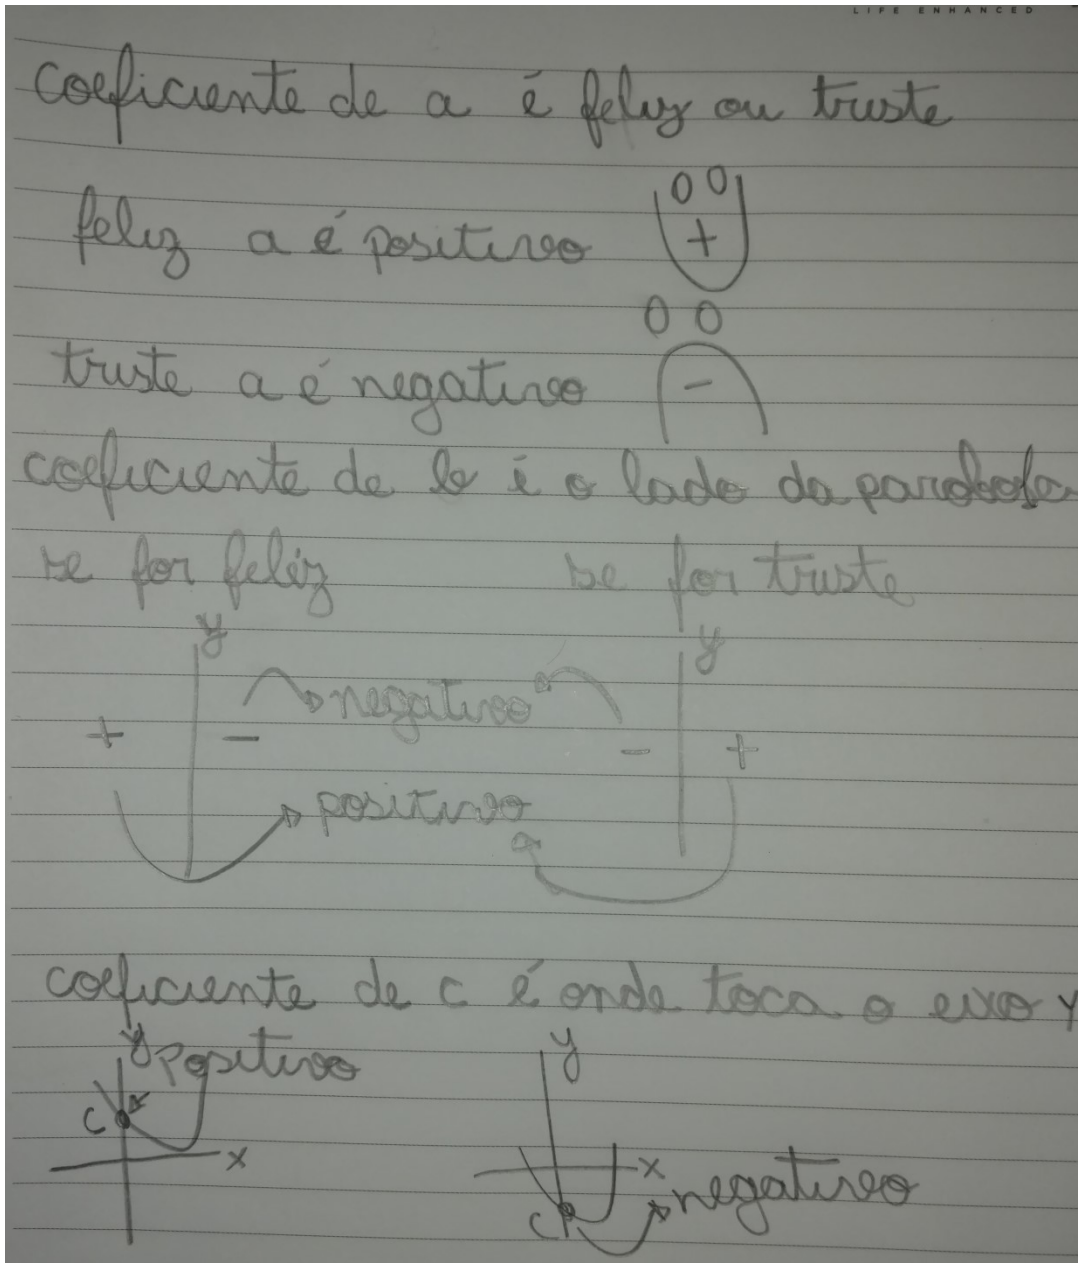 LIFE ENHANCED
coeficiente de a é feliz ou triste
feliz a é positivo
0 0
+
0 0
triste a é negativo
-
coeficiente de b é o lado da parabola
se for feliz se for triste
y y
negativo
+ - - +
positivo
coeficiente de c é onde toca o eixo y
y positivo y
c
x x
c negativo